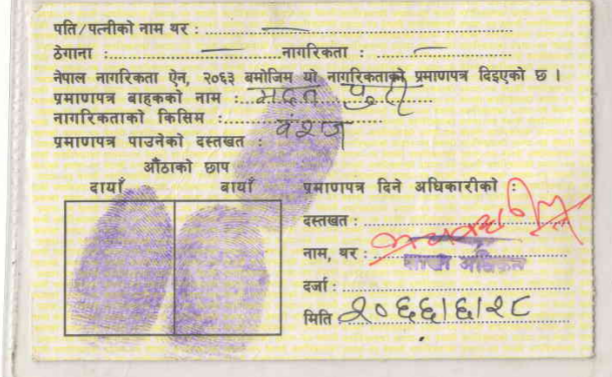 पति/पत्नीको नाम थर :
ठेगाना : नागरिकता :
नेपाल नागरिकता ऐन, २०६३ बमोजिम यो नागरिकताको प्रमाणपत्र दिइएको छ ।
प्रमाणपत्र बाहकको नाम : मदन पुरी
नागरिकताको किसिम : वंशज
प्रमाणपत्र पाउनेको दस्तखत :
औंठाको छाप
दायाँ बायाँ प्रमाणपत्र दिने अधिकारीको :
दस्तखत :
नाम, थर :
शाखा अधिकृत
दर्जा :
मिति : २०६६।६।२८